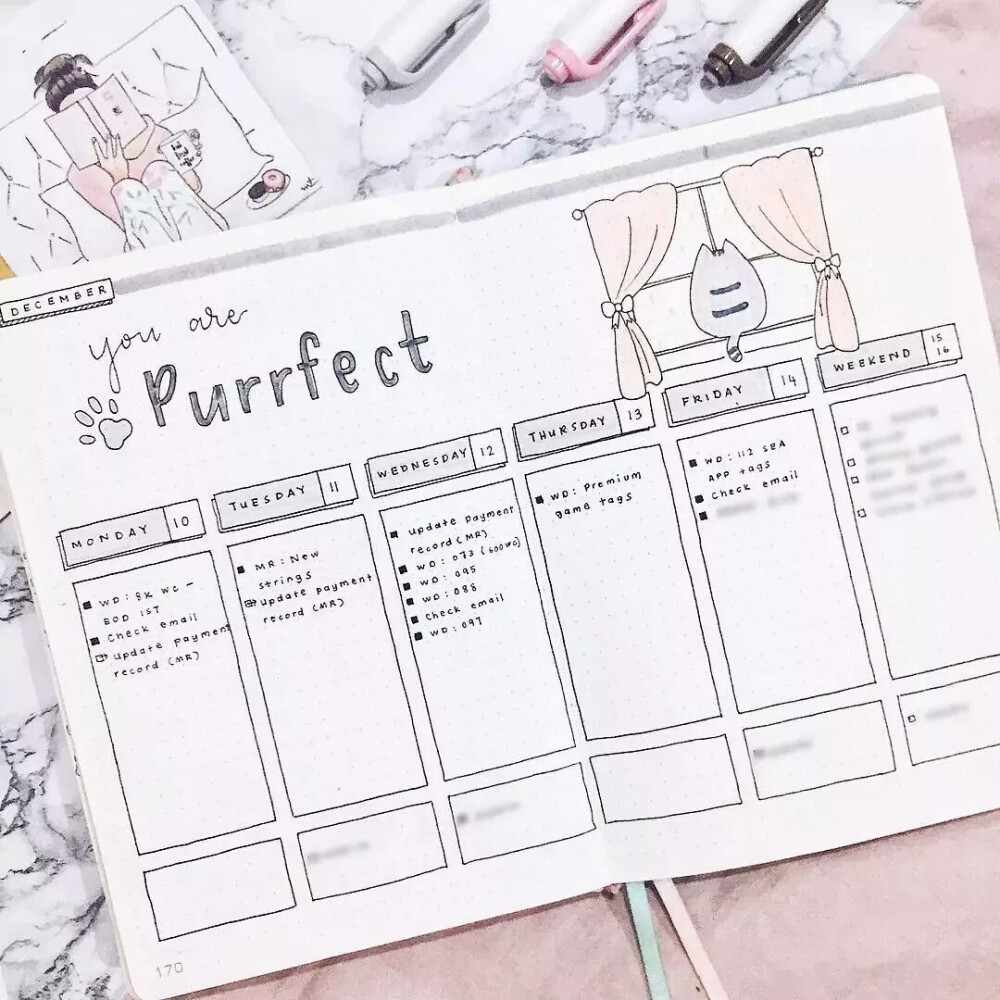 DECEMBER
you are
Purrfect
MONDAY 10
WD: 8K WC -
EOD IST
Check email
update payment
record (MR)
TUESDAY 11
MR: New
strings
update payment
record (MR)
WEDNESDAY 12
update payment
record (MR)
WD: 073 (600WC)
WD: 095
WD: 088
Check email
WD: 097
THURSDAY 13
WD: Premium
game tags
FRIDAY 14
WD: 112 SEA
APP tags
Check email
WEEKEND 15
16
170